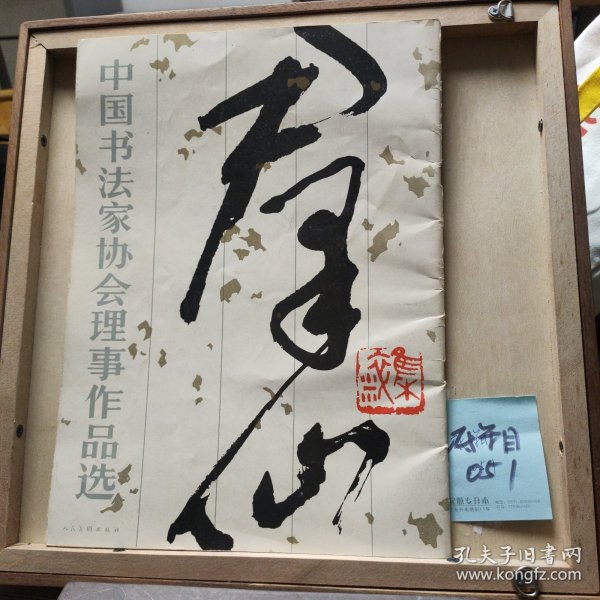 中国书法家协会理事作品选
群仙
集
人民美術出版社
051
专升本
孔夫子旧书网
www.kongfz.com